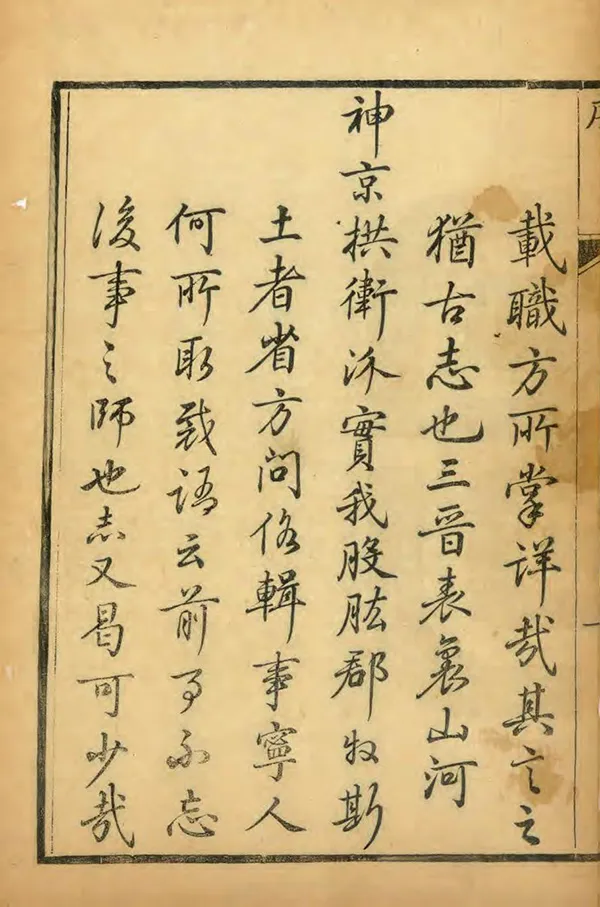 載職方所掌詳哉其言之
猶古志也三晉表裏山河
神京拱衛汾實我股肱郡牧斯
土者省方問俗輯事寧人
何所取裁語云前事不忘
後事之師也志又曷可少哉